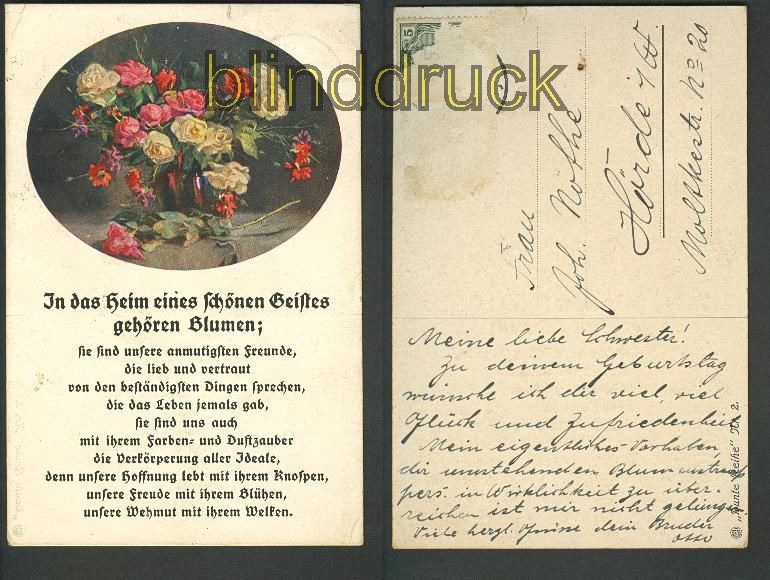 blinddruck
In das Heim eines schönen Geistes
gehören Blumen;
sie sind unsere anmutigsten Freunde,
die lieb und vertraut
von den beständigsten Dingen sprechen,
die das Leben jemals gab,
sie sind uns auch
mit ihrem Farben- und Duftzauber
die Verkörperung aller Ideale,
denn unsere Hoffnung lebt mit ihrem Knospen,
unsere Freude mit ihrem Blühen,
unsere Wehmut mit ihrem Welken.
5
Frau
Joh. Nöthe
Hörde i/W
Moltkestr. No 20
Meine liebe Schwester!
Zu deinem Geburtstag
wünsche ich dir viel, viel
Glück und Zufriedenheit
Mein eigentliches Vorhaben,
dir umstehenden Blumenstrauß
pers. in Wirklichkeit zu über-
reichen ist mir nicht gelungen
Viele herzl. Grüsse dein Bruder
Otto
„Bunte Reihe" Nr. 2.